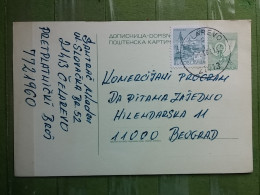 ДОПИСНИЦА-DOPISNICA
ПОШТЕНСКА КАРТИЧКА
ČELAREVO
Šantrač Miladin
Ul. Slovačka br. 52
21413 Čelarevo
Pretplatnički broj
7721960
Komercijalni program
Da pitama zajedno
Hilendarska 11
11000 Beograd